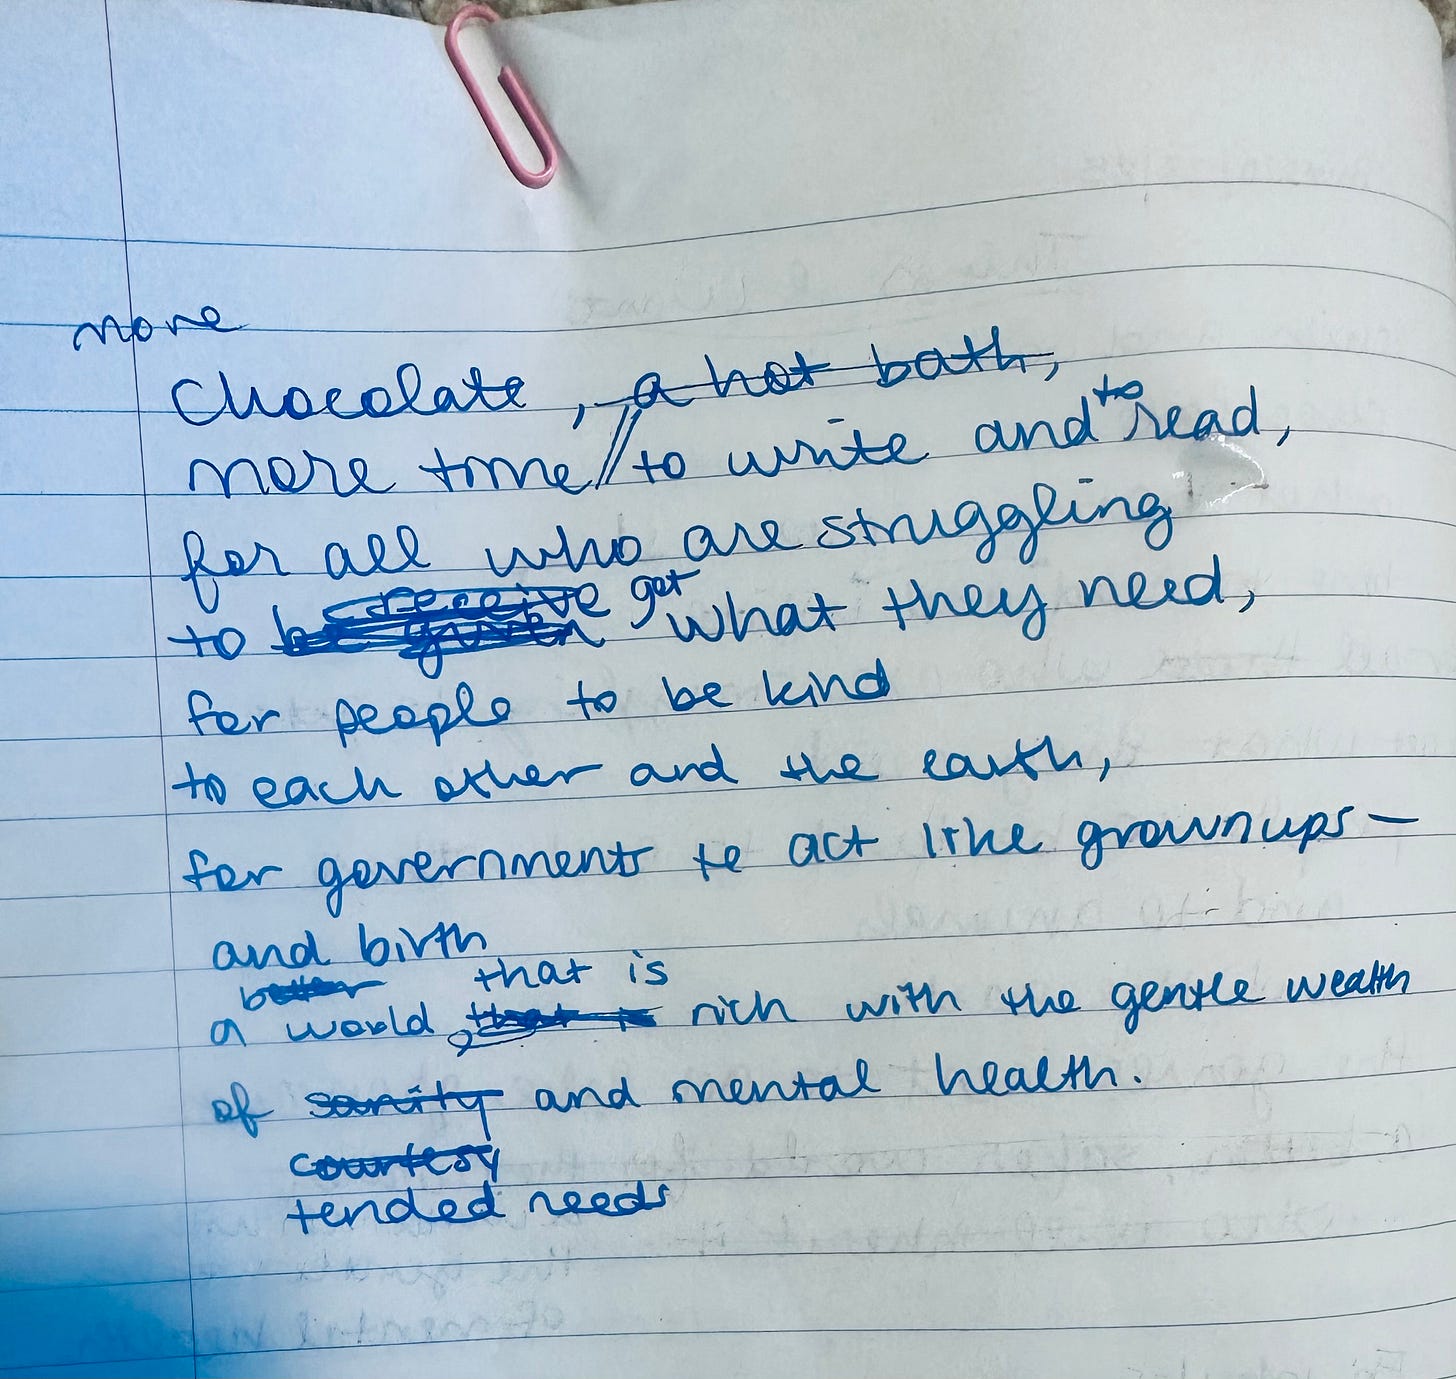 more
chocolate, a hot bath,
more time // to write and to read,
for all who are struggling
receive get
to be given what they need,
for people to be kind
to each other and the earth,
for governments to act like grownups —
and birth
better that is
a world, that is rich with the gentle wealth
of sanity and mental health.
courtesy
tended needs